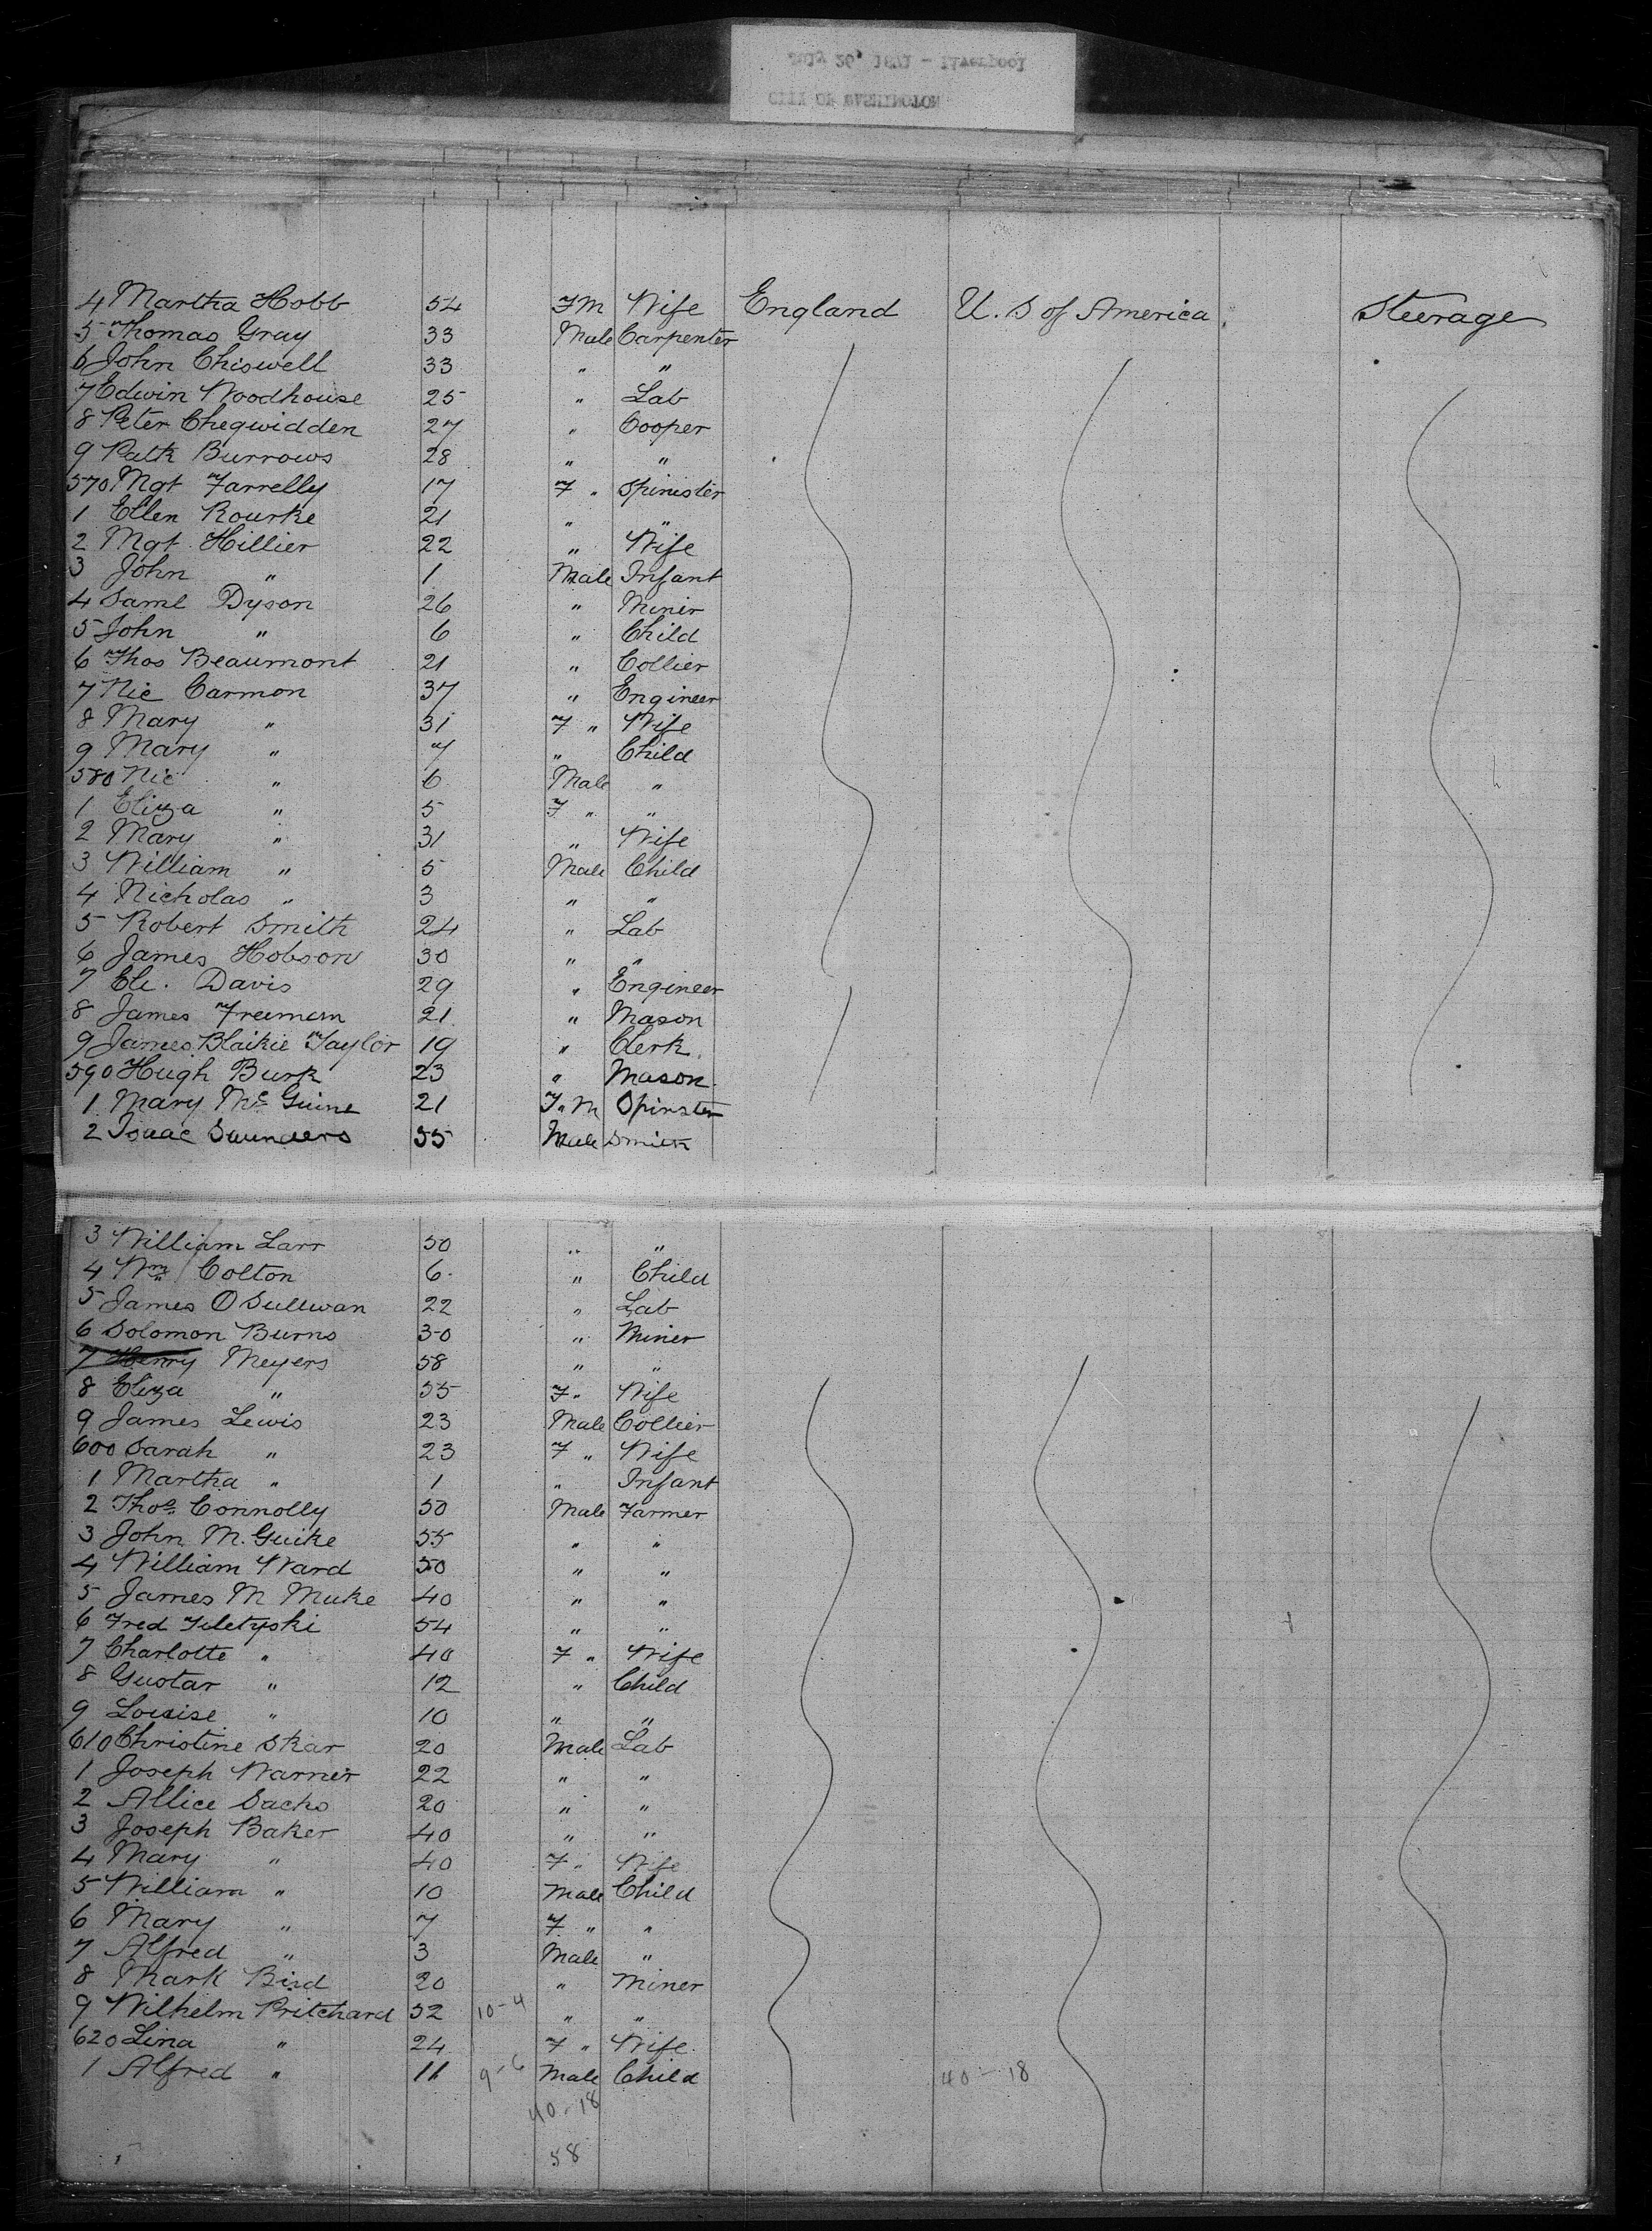 July 26, 1871 - Liverpool
CITY OF WASHINGTON
4 Martha Hobb 54 FM Wife England U. S of America Steerage
5 Thomas Gray 33 Male Carpenter
6 John Chiswell 33 " "
7 Edwin Woodhouse 25 " Lab
8 Peter Chegwidden 27 " Cooper
9 Patk Burrows 28 " "
570 Mgt Farrelly 17 F " Spinister
1 Ellen Rourke 21 " "
2 Mgt Hillier 22 " Wife
3 John " 1 Male Infant
4 Saml Dyson 26 " Miner
5 John " 6 " Child
6 Thos Beaumont 21 " Collier
7 Nic Carmon 37 " Engineer
8 Mary " 31 F " Wife
9 Mary " 7 " Child
580 Nic " 6 Male "
1 Eliza " 5 F " "
2 Mary " 31 " Wife
3 William " 5 Male Child
4 Nicholas " 3 " "
5 Robert Smith 24 " Lab
6 James Hobson 30 " "
7 Eli. Davis 29 " Engineer
8 James Freeman 21 " Mason
9 James Blaikie Taylor 19 " Clerk
590 Hugh Burk 23 " Mason
1 Mary Mc Guine 21 F. M Spinster
2 Isaac Saunders 55 Male Smith
3 William Larr 50 " "
4 Wm Colton 6 " Child
5 James O Sullivan 22 " Lab
6 Solomon Burns 30 " Miner
7 Henry Meyers 58 " "
8 Eliza " 55 F " Wife
9 James Lewis 23 Male Collier
600 Sarah " 23 F " Wife
1 Martha " 1 " Infant
2 Thos Connolly 50 Male Farmer
3 John M. Guike 55 " "
4 William Ward 50 " "
5 James M Muke 40 " "
6 Fred 54 " "
7 Charlotte " 40 F " Wife
8 Gustav " 12 " Child
9 Louise " 10 " "
610 Christine Skar 20 Male Lab
1 Joseph Warner 22 " "
2 Allice Sachs 20 " "
3 Joseph Baker 40 " "
4 Mary " 40 F " Wife
5 William " 10 Male Child
6 Mary " 7 F " "
7 Alfred " 3 Male "
8 Mark Bird 20 " Miner
9 Wilhelm Pritchard 52 10-4 " "
620 Lina " 24 F " Wife
1 Alfred " 11 9-6 Male Child 40-18
40-18
58